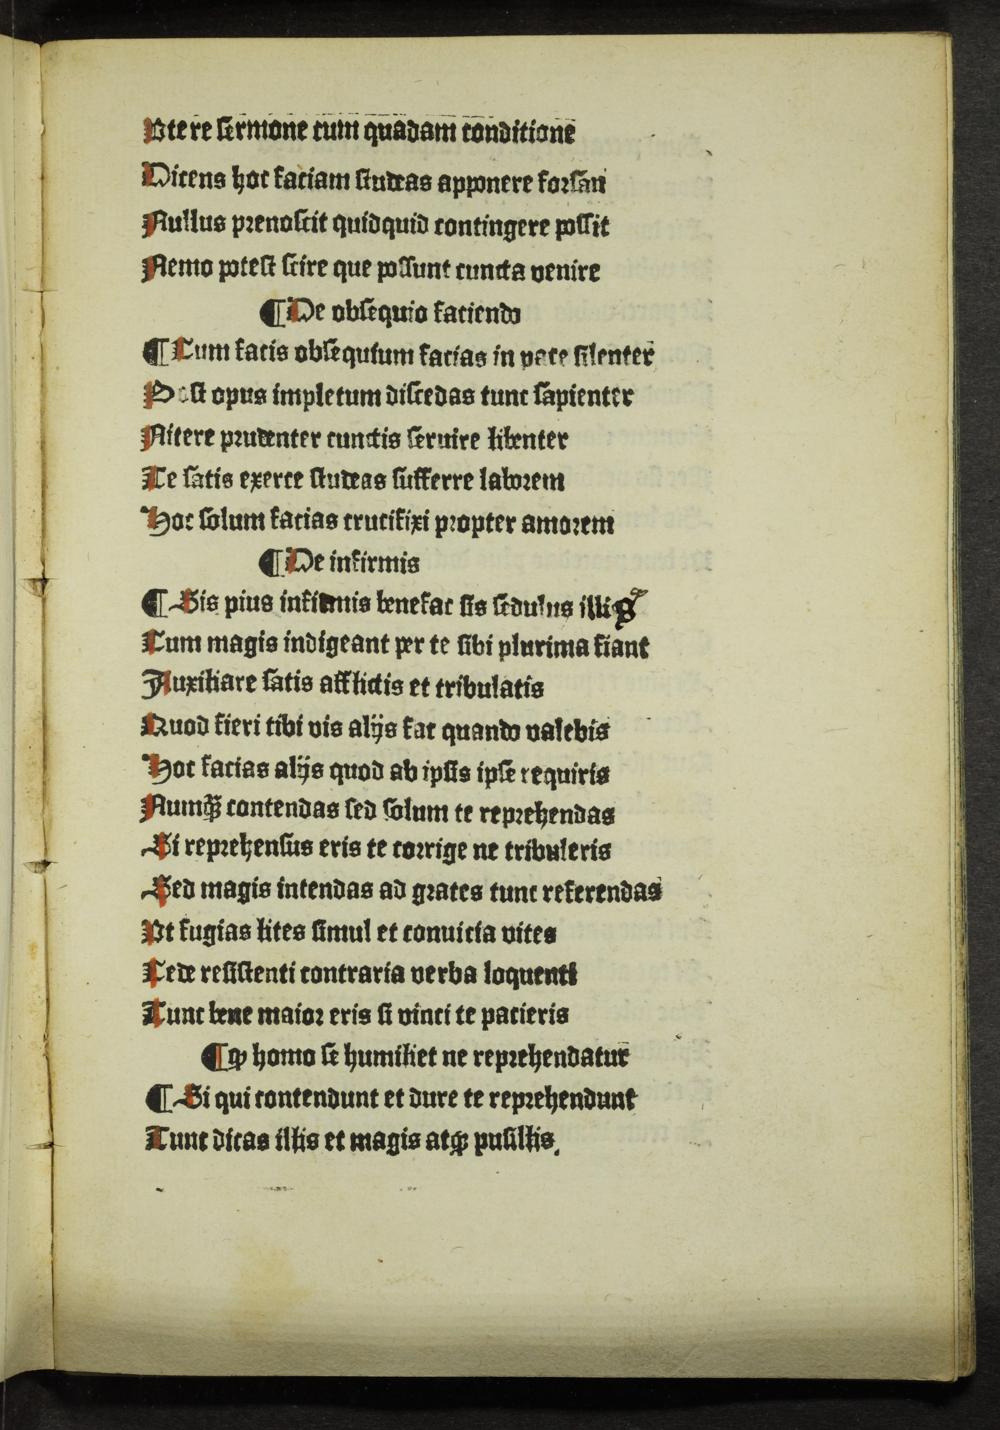 Vtere sermone cum quadam conditione
Dicens hoc faciam studeas apponere forsan
Nullus prenoscit quidquid contingere possit
Nemo potest scire que possunt cuncta venire
¶ De obsequio faciendo
¶ Cum facis obsequium facias in pace silenter
Post opus impletum discedas tunc sapienter
Nitere prudenter cunctis seruire libenter
Te satis exerce studeas sufferre laborem
Hoc solum facias crucifixi propter amorem
¶ De infirmis
¶ Sis pius infirmis benefac sis sedulus illis
Cum magis indigeant per te sibi plurima fiant
Auxiliare satis afflictis et tribulatis
Quod fieri tibi vis alijs fac quando valebis
Hoc facias alijs quod ab ipsis ipse requiris
Numqꝫ contendas sed solum te reprehendas
Si reprehensus eris te corrige ne tribuleris
Sed magis intendas ad grates tunc referendas
Vt fugias lites simul et conuicia vites
Cede resistenti contraria verba loquenti
Tunc bene maior eris si vinci te pacieris
¶ ꝙ homo se humiliet ne reprehendatur
¶ Si qui contendunt et dure te reprehendunt
Tunc dicas illis et magis atqꝫ pusillis.